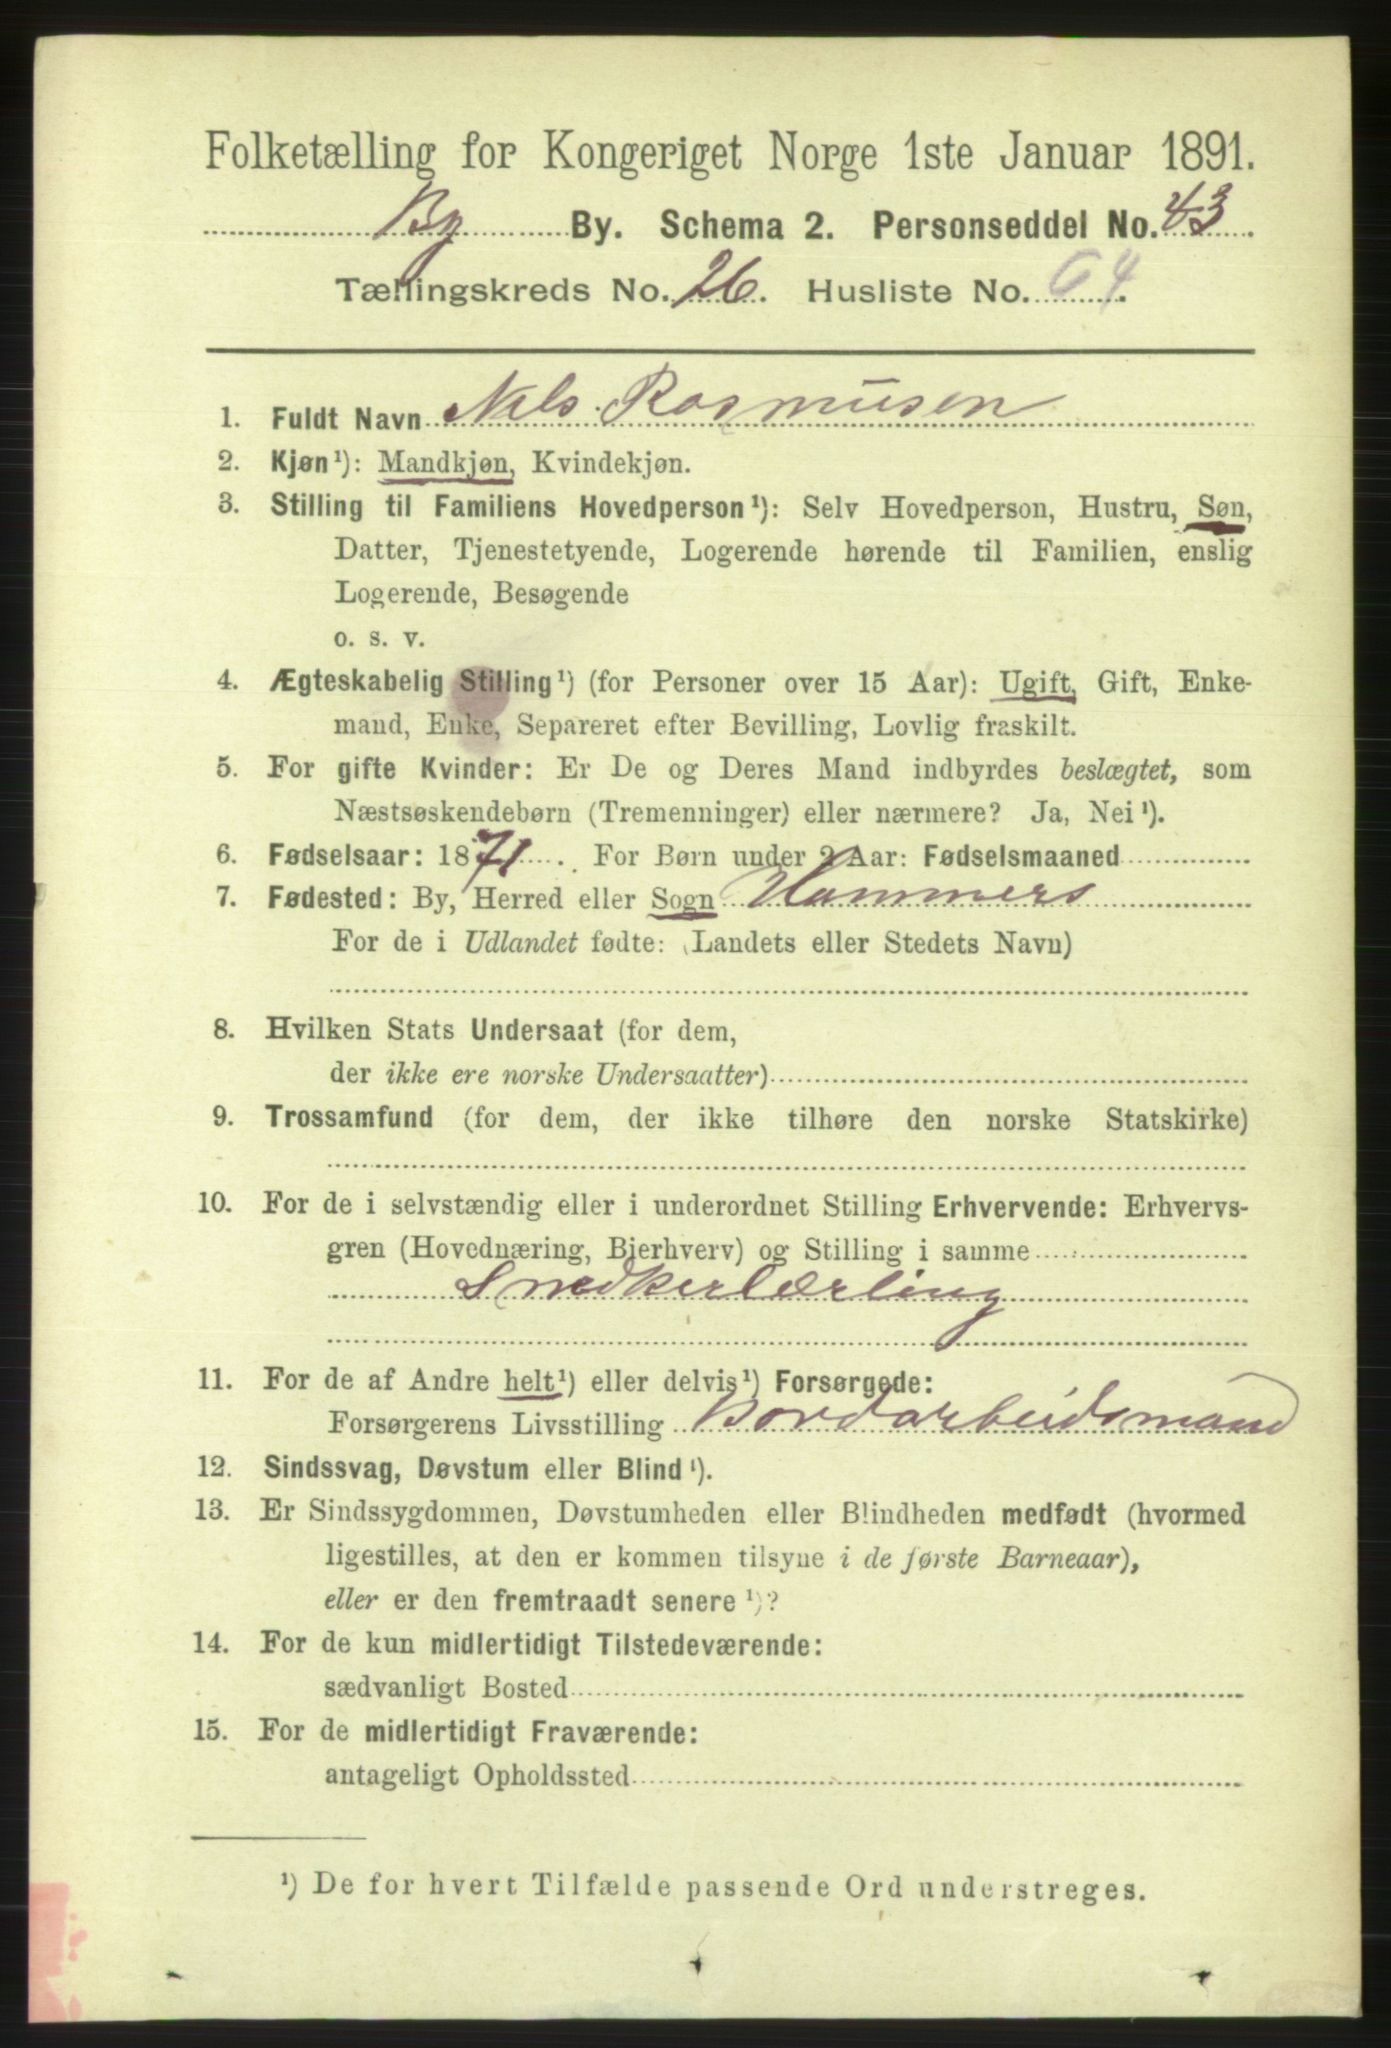 Folketælling for Kongeriget Norge 1ste Januar 1891.
By By. Schema 2. Personseddel No. 43.
Tællingskreds No. 26. Husliste No. 64.
1. Fuldt Navn Nels Rasmusen
2. Kjøn¹): Mandkjøn, Kvindekjøn.
3. Stilling til Familiens Hovedperson¹): Selv Hovedperson, Hustru, Søn,
Datter, Tjenestetyende, Logerende hørende til Familien, enslig
Logerende, Besøgende
o. s. v.
4. Ægteskabelig Stilling¹) (for Personer over 15 Aar): Ugift, Gift, Enke-
mand, Enke, Separeret efter Bevilling, Lovlig fraskilt.
5. For gifte Kvinder: Er De og Deres Mand indbyrdes beslægtet, som
Næstsøskendebørn (Tremenninger) eller nærmere? Ja, Nei¹).
6. Fødselsaar: 1871. For Børn under 2 Aar: Fødselsmaaned
7. Fødested: By, Herred eller Sogn Hammers
For de i Udlandet fødte: (Landets eller Stedets Navn)
8. Hvilken Stats Undersaat (for dem,
der ikke ere norske Undersaatter)
9. Trossamfund (for dem, der ikke tilhøre den norske Statskirke)
10. For de i selvstændig eller i underordnet Stilling Erhvervende: Erhvervs-
gren (Hovednæring, Bierhverv) og Stilling i samme
Snedkerlærling
11. For de af Andre helt¹) eller delvis¹) Forsørgede:
Forsørgerens Livsstilling Bordarbeidsmand
12. Sindssvag, Døvstum eller Blind¹).
13. Er Sindssygdommen, Døvstumheden eller Blindheden medfødt (hvormed
ligestilles, at den er kommen tilsyne i de første Barneaar),
eller er den fremtraadt senere¹)?
14. For de kun midlertidigt Tilstedeværende:
sædvanligt Bosted
15. For de midlertidigt Fraværende:
antageligt Opholdssted
¹) De for hvert Tilfælde passende Ord understreges.